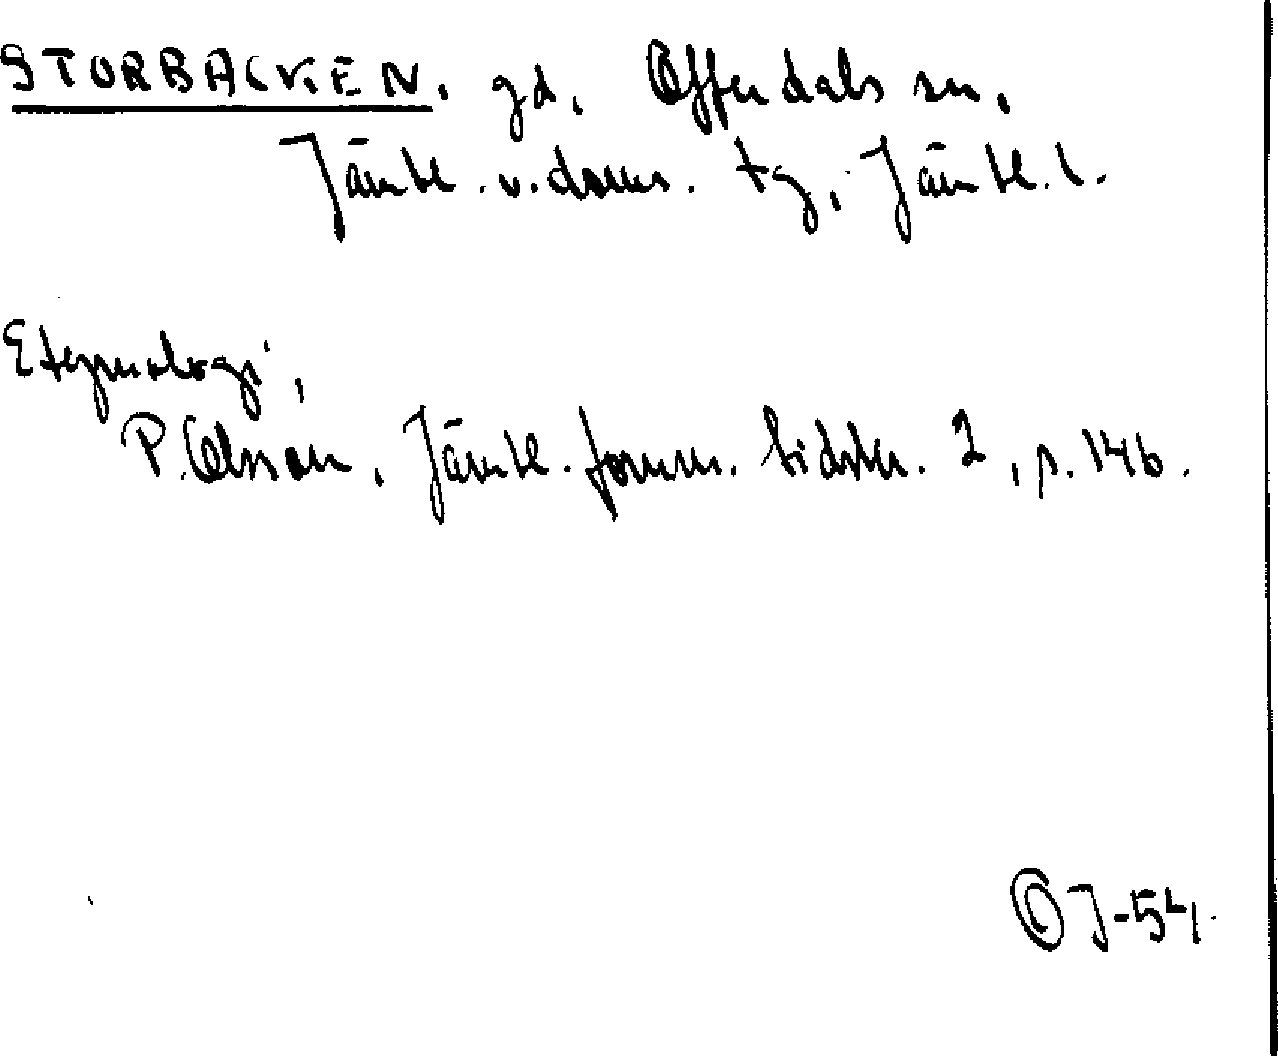 STORBACKEN, gd, Offerdals sn,
Jämtl. v. doms. tg, Jämtl. l.
Etymologi,
P. Olsson, Jämtl. fornm. tidskr. 2, p. 146.
OJ-54.